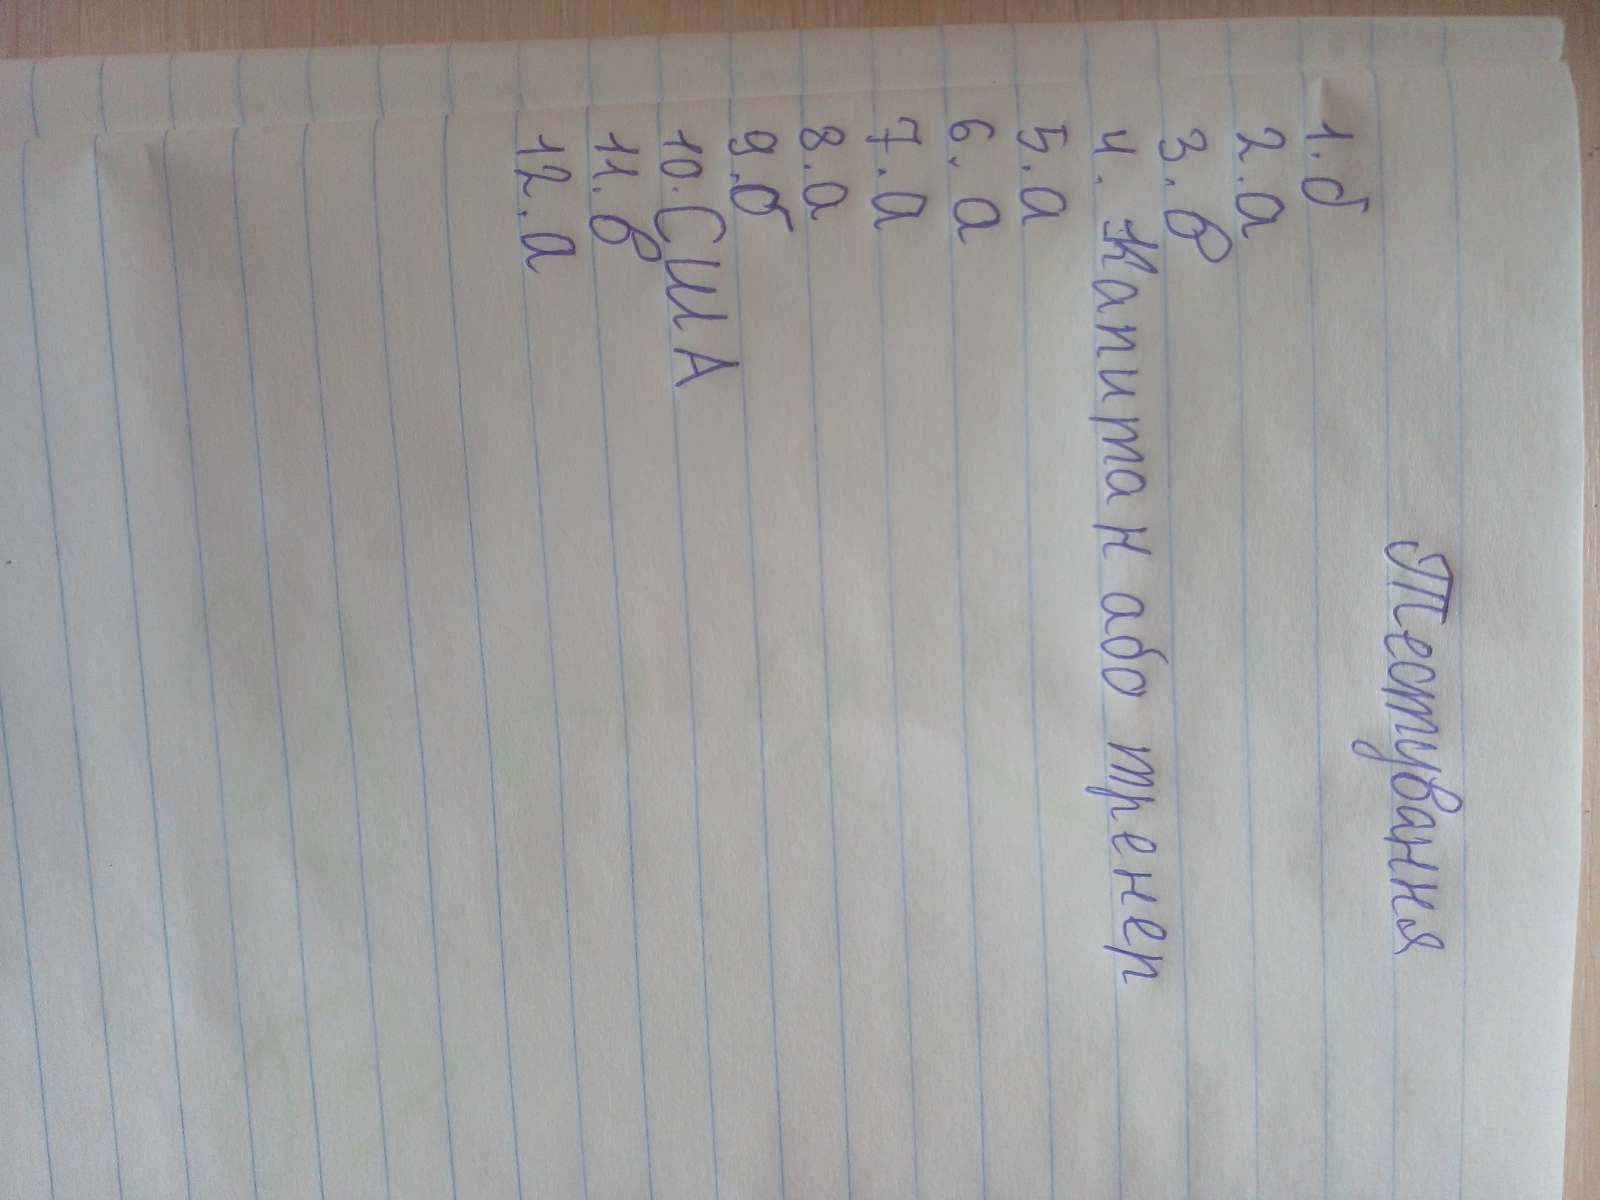 Тестування
1. б
2. а
3. в
4. Капитан або тренер
5. а
6. а
7. а
8. а
9. б
10. США
11. в
12. а